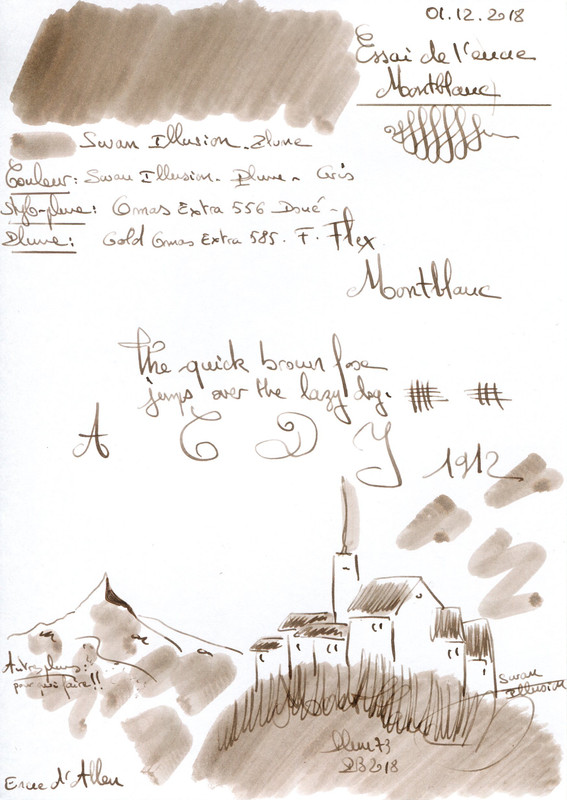 01.12.2018
Essai de l'encre
Montblanc
Swan Illusion - Plume
Couleur: Swan Illusion - Plume - Gris
Stylo-plume: Omas Extra 556 Doué -
Plume: Gold Omas Extra 585. F. Flex
Montblanc
the quick brown foxe
jumps over the lazy dog.
A C D Y 1912
Autres plumes:
pourquoi faire!!
Swan
Illusion
Plume73
2018
Encre d'Allem